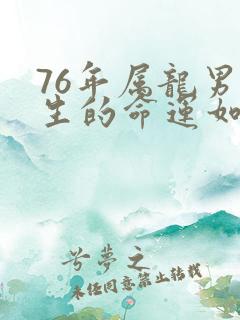 76年属龍男
生的命運如
兮夢之
未经同意禁止转载